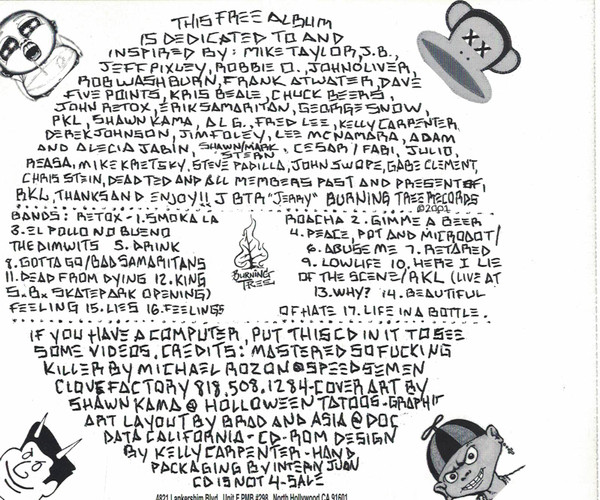 THIS FREE ALBUM
IS DEDICATED TO AND
INSPIRED BY: MIKE TAYLOR, J.B.,
JEFF PIXLEY, ROBBIE O., JOHN OLIVER,
ROB WASHBURN, FRANK ATWATER, DAVE
FIVE POINTS, KRIS BEALE, CHUCK BEERS,
JOHN RETOX, ERIK SAMARITAN, GEORGE SNOW,
PKL, SHAWN KAMA, ALG., FRED LEE, KELLY CARPENTER,
DEREK JOHNSON, JIM FOLEY, LEE MCNAMARA, ADAM
AND ALECIA JABIN, SHAWN/MARK STERN, CESAR/FABI, JULIO,
REASA, MIKE KRETSKY, STEVE PADILLA, JOHN SWOPE, GABE CLEMENT,
CHRIS STEIN, DEAD TED AND ALL MEMBERS PAST AND PRESENT OF,
RKL, THANKS AND ENJOY!! J BTR "JERRY" BURNING TREE RECORDS
©2001
BANDS: RETOX - 1. SMOKA LA ROACHA 2. GIMME A BEER
3. EL POLLO NO BUENO 4. PEACE, POT AND MICRODOT/
THE DIMWITS 5. DRINK 6. ABUSE ME 7. RETARED
8. GOTTA GO/BAD SAMARITANS 9. LOWLIFE 10. HERE I LIE
11. DEAD FROM DYING 12. KING OF THE SCENE/RKL (LIVE AT
S.B. SKATEPARK OPENING) 13. WHY? 14. BEAUTIFUL
FEELING 15. LIES 16. FEELINGS OF HATE 17. LIFE IN A BOTTLE.
BURNING
TREE
IF YOU HAVE A COMPUTER, PUT THIS CD IN IT TO SEE
SOME VIDEOS, CREDITS: MASTERED SO FUCKING
KILLER BY MICHAEL ROZON @ SPEEDSEMEN
CLOVE FACTORY 818.508.1284 - COVER ART BY
SHAWN KAMA @ HOLLOWEEN TATOOS - GRAPHIT
ART LAYOUT BY BRAD AND ASIA @ DOC
DATA CALIFORNIA - CD-ROM DESIGN
BY KELLY CARPENTER - HAND
PACKAGING BY INTERN JUAN
CD IS NOT 4-SALE
4821 Lankershim Blvd., Unit F PMB #298, North Hollywood CA 91601